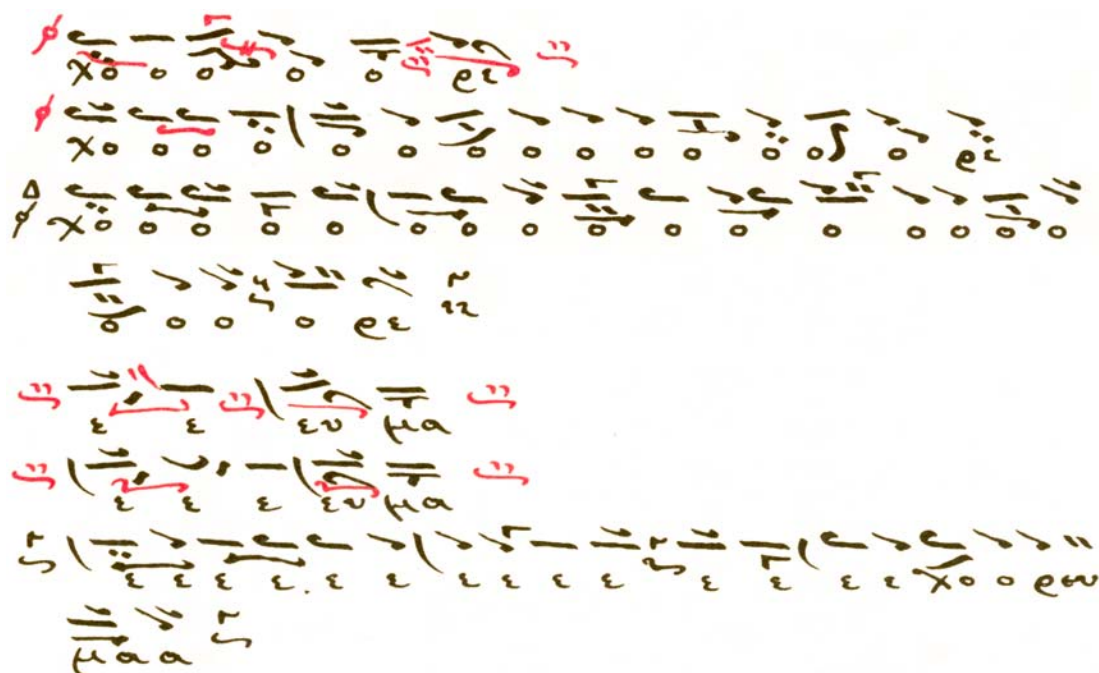 χο ο ο ο ο ρε
χο ο ο ο ο ο ο ο ο ο ο ο ο ο ρε
χο ο ο ο ο ο ο ο ο ο ο ο ο ο ο ο
ο ο ο ο ρε
ε ε ευ μα
ε ε ε ευ μα
ε ε ε ε ε ε ε ε ε ε ε ε ε ε χο ο ρευ
μα α